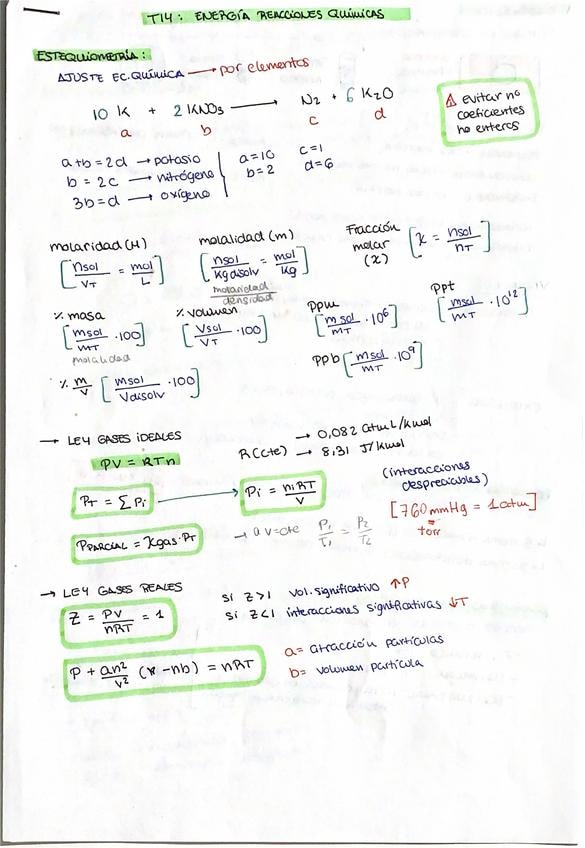 T14: ENERGÍA REACCIONES QUÍMICAS
ESTEQUIOMETRÍA:
AJUSTE EC. QUÍMICA → por elementos
10 K + 2 KNO3 → N2 + 6 K2O
a b c d
⚠ Evitar no coeficientes no enteros
a+b = 2d → potasio
b = 2c → nitrógeno
3b = d → oxígeno
a = 10 c = 1
b = 2 d = 6
molaridad (M) [nsol/VT = mol/L]
molalidad (m) [nsol/Kg disolv = mol/Kg]
molaridad/densidad
Fracción molar (X) [X = nsol/nT]
% masa [msol/mT · 100]
molalidad
% volumen [Vsol/VT · 100]
ppm [msol/mT · 10^6]
ppt [msol/mT · 10^12]
ppb [msol/mT · 10^9]
% m/v [msol/Vdisolv · 100]
→ LEY GASES IDEALES
PV = RTn
R(cte) → 0,082 atmL/Kmol
→ 8,31 J/Kmol
PT = ΣPi → Pi = niRT/V
(interacciones despreciables)
[760 mmHg = 1 atm]
torr
PPARCIAL = Xgas · PT
→ a V=cte P1/T1 = P2/T2
→ LEY GASES REALES
Z = PV/nRT = 1
si Z>1 vol. significativo ↑P
si Z<1 interacciones significativas ↓T
P + an²/V² (V - nb) = nRT
a = atracción partículas
b = volumen partícula